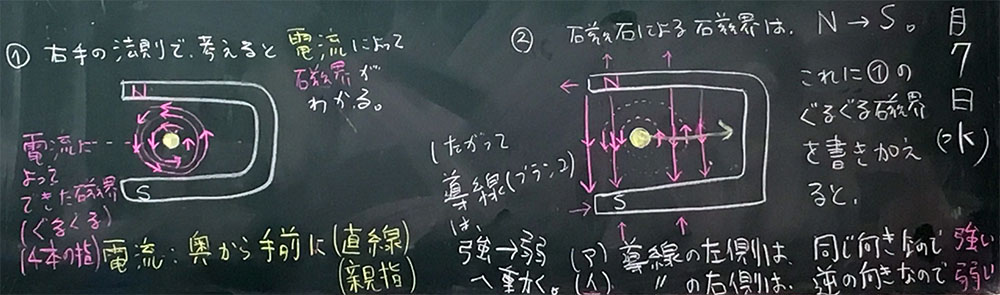 ① 右手の法則で、考えると 電流によって
磁界が
わかる。
N
S
電流に
よって
できた磁界
(ぐるぐる)
(4本の指)
電流:奥から手前に(直線)
(親指)
② 磁石による磁界は、N→S。
これに①の
ぐるぐる磁界
を書き加え
ると、
N
S
したがって
導線(ブランコ)
は、
強→弱
へ動く。
(ア) 導線の左側は、同じ向きなので強い
(イ) 〃の右側は、逆の向きなので弱い
月
7
日
(水)